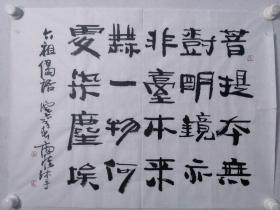 菩提本無
樹明鏡亦
非臺本来
無一物何
處染塵埃
六祖偈語